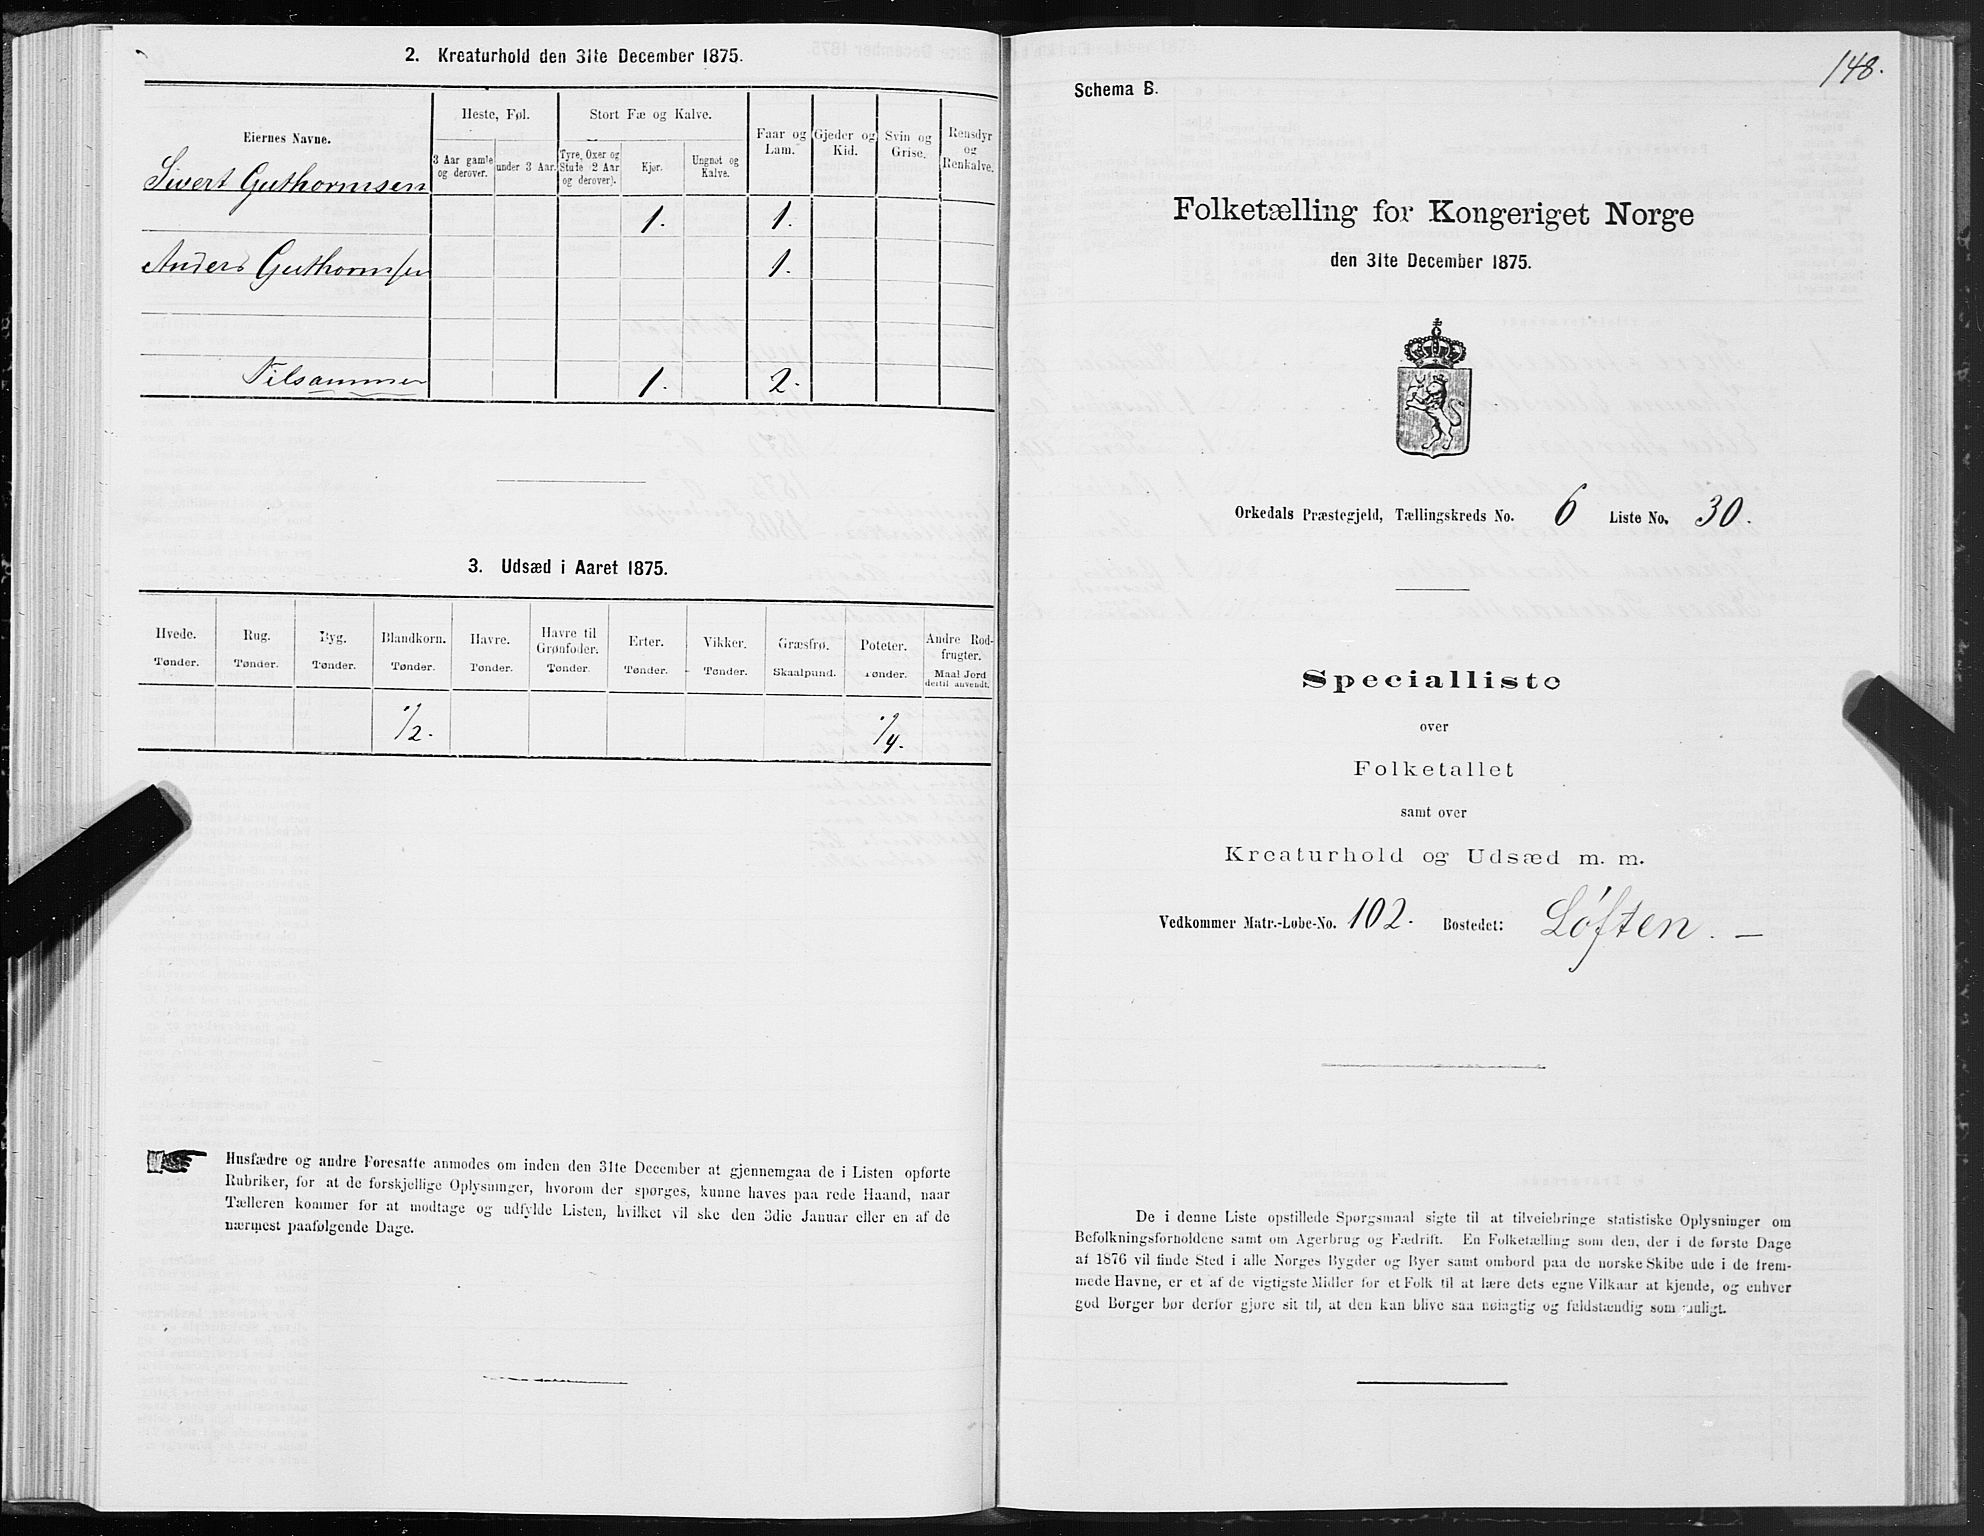 2. Kreaturhold den 31te December 1875.
Eiernes Navne.
Heste, Føl.
Stort Fæ og Kalve.
Faar og Lam.
Gjeder og Kid.
Svin og Grise.
Rensdyr og Renkalve.
3 Aar gamle og derover.
under 3 Aar.
Tyre, Oxer og Stude (2 Aar og derover).
Kjør.
Ungnøt og Kalve.
Sivert Guthormsen 1. 1.
Anders Guthormsen 1.
Tilsammen 1. 2.
3. Udsæd i Aaret 1875.
Hvede. Rug. Byg. Blandkorn. Havre. Havre til Grønfoder. Erter. Vikker. Græsfrø. Poteter. Andre Rodfrugter.
Tønder. Tønder. Tønder. Tønder. Tønder. Tønder. Tønder. Tønder. Skaalpund. Tønder. Maal Jord dertil anvendt.
1/2. 1/4.
Husfædre og andre Foresatte anmodes om inden den 31te December at gjennemgaa de i Listen opførte
Rubriker, for at de forskjellige Oplysninger, hvorom der spørges, kunne haves paa rede Haand, naar
Tælleren kommer for at modtage og udfylde Listen, hvilket vil ske den 3die Januar eller en af de
nærmest paafølgende Dage.
148.
Schema B.
Folketælling for Kongeriget Norge
den 31te December 1875.
Orkedals Præstegjeld, Tællingskreds No. 6 Liste No. 30.
Specialliste
over
Folketallet
samt over
Kreaturhold og Udsæd m. m.
Vedkommer Matr.-Løbe-No. 102. Bostedet: Løften. —
De i denne Liste opstillede Spørgsmaal sigte til at tilveiebringe statistiske Oplysninger om
Befolkningsforholdene samt om Agerbrug og Fædrift. En Folketælling som den, der i de første Dage
af 1876 vil finde Sted i alle Norges Bygder og Byer samt ombord paa de norske Skibe ude i de frem-
mede Havne, er et af de vigtigste Midler for et Folk til at lære dets egne Vilkaar at kjende, og enhver
god Borger bør derfor gjøre sit til, at den kan blive saa nøiagtig og fuldstændig som muligt.